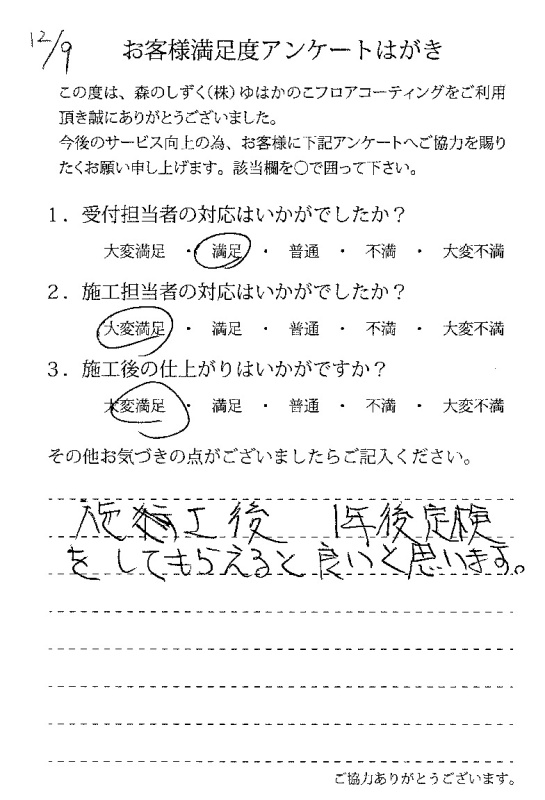 12/9
お客様満足度アンケートはがき
この度は、森のしずく(株)ゆはかのこフロアコーティングをご利用
頂き誠にありがとうございました。
今後のサービス向上の為、お客様に下記アンケートへご協力を賜り
たくお願い申し上げます。該当欄を○で囲って下さい。
1．受付担当者の対応はいかがでしたか？
大変満足 ・ 満足 ・ 普通 ・ 不満 ・ 大変不満
2．施工担当者の対応はいかがでしたか？
大変満足 ・ 満足 ・ 普通 ・ 不満 ・ 大変不満
3．施工後の仕上がりはいかがですか？
大変満足 ・ 満足 ・ 普通 ・ 不満 ・ 大変不満
その他お気づきの点がございましたらご記入ください。
施工後 1年後定検
をしてもらえると良いと思います。
ご協力ありがとうございます。